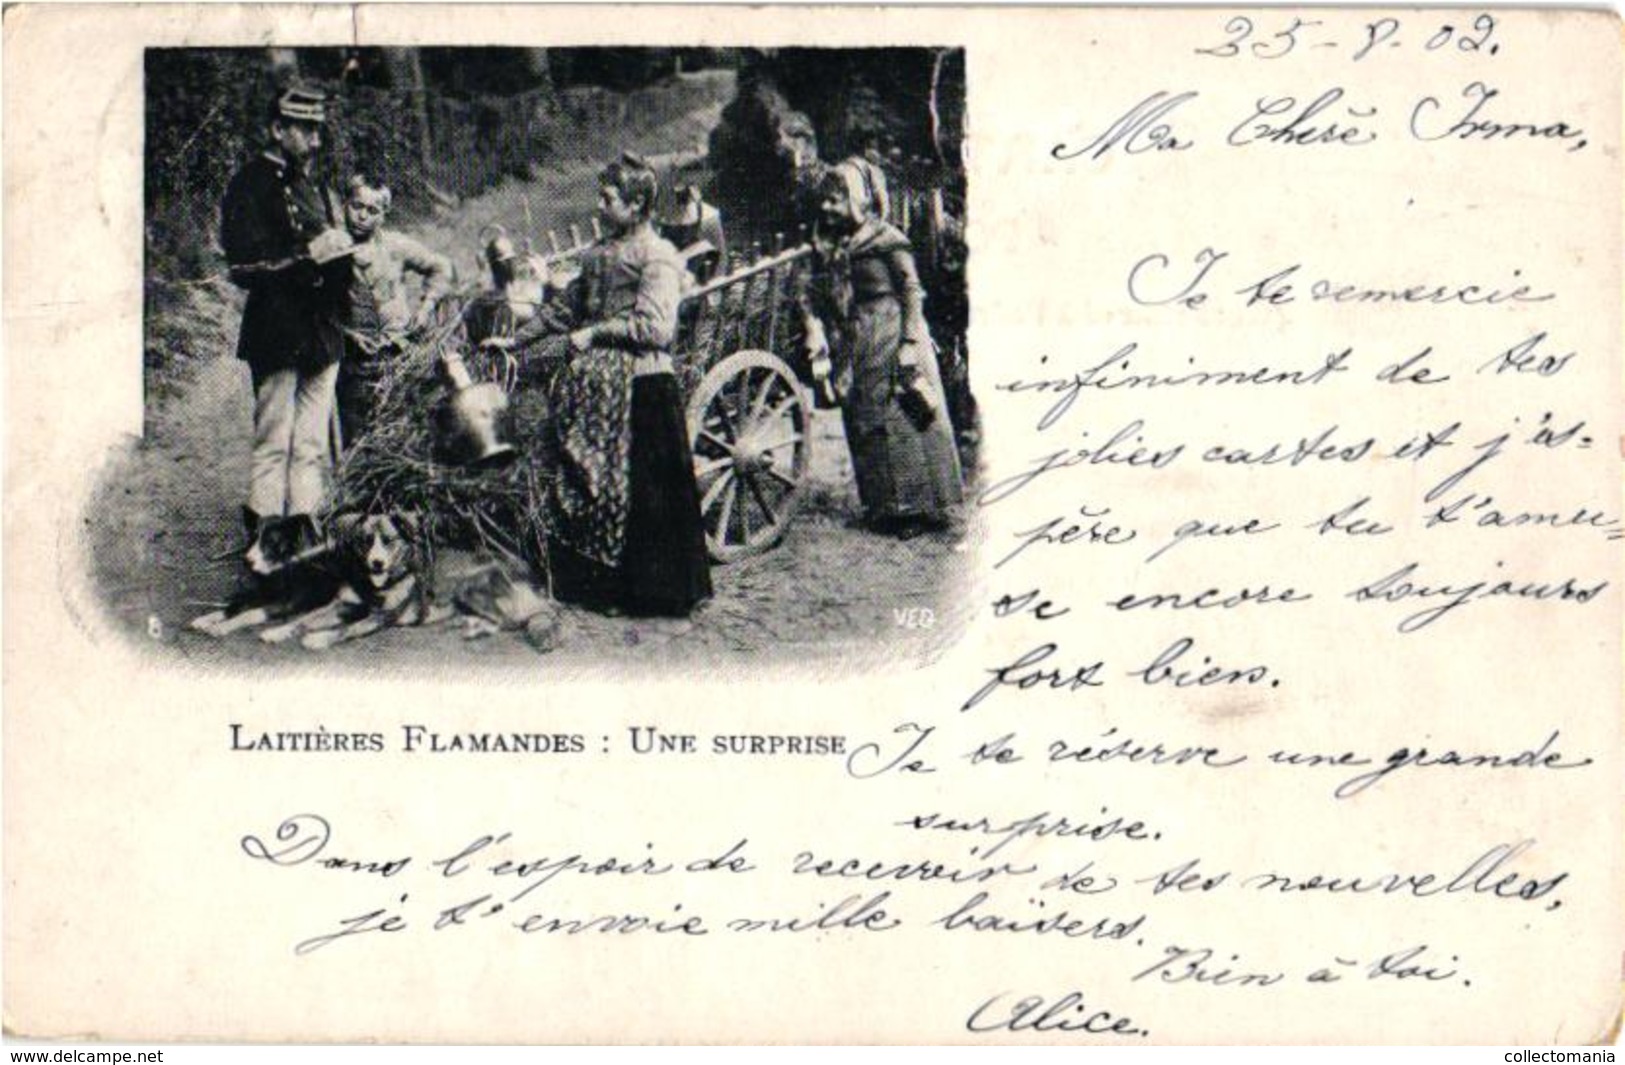 25-8-02.
Ma Chère Irma,
Je te remercie
infiniment de tes
jolies cartes et j'es=
père que tu t'amu=
se encore toujours
fort bien.
8
VED
LAITIÈRES FLAMANDES : UNE SURPRISE
Je te réserve une grande
surprise.
Dans l'espoir de recevoir de tes nouvelles,
je t'envoie mille baïsers.
Bien à toi.
Alice.
www.delcampe.net
collectomania